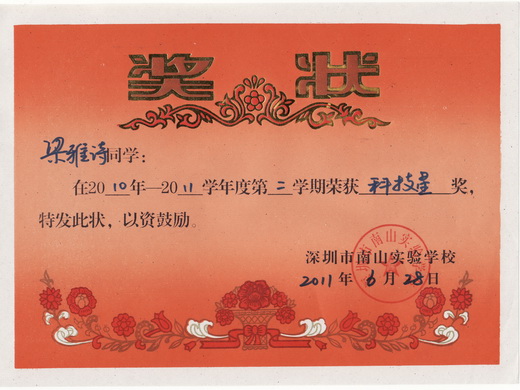 奖状
梁雅诗同学：
在2010年—2011学年度第二学期荣获 科技星 奖，
特发此状，以资鼓励。
深圳市南山实验学校
2011年6月28日